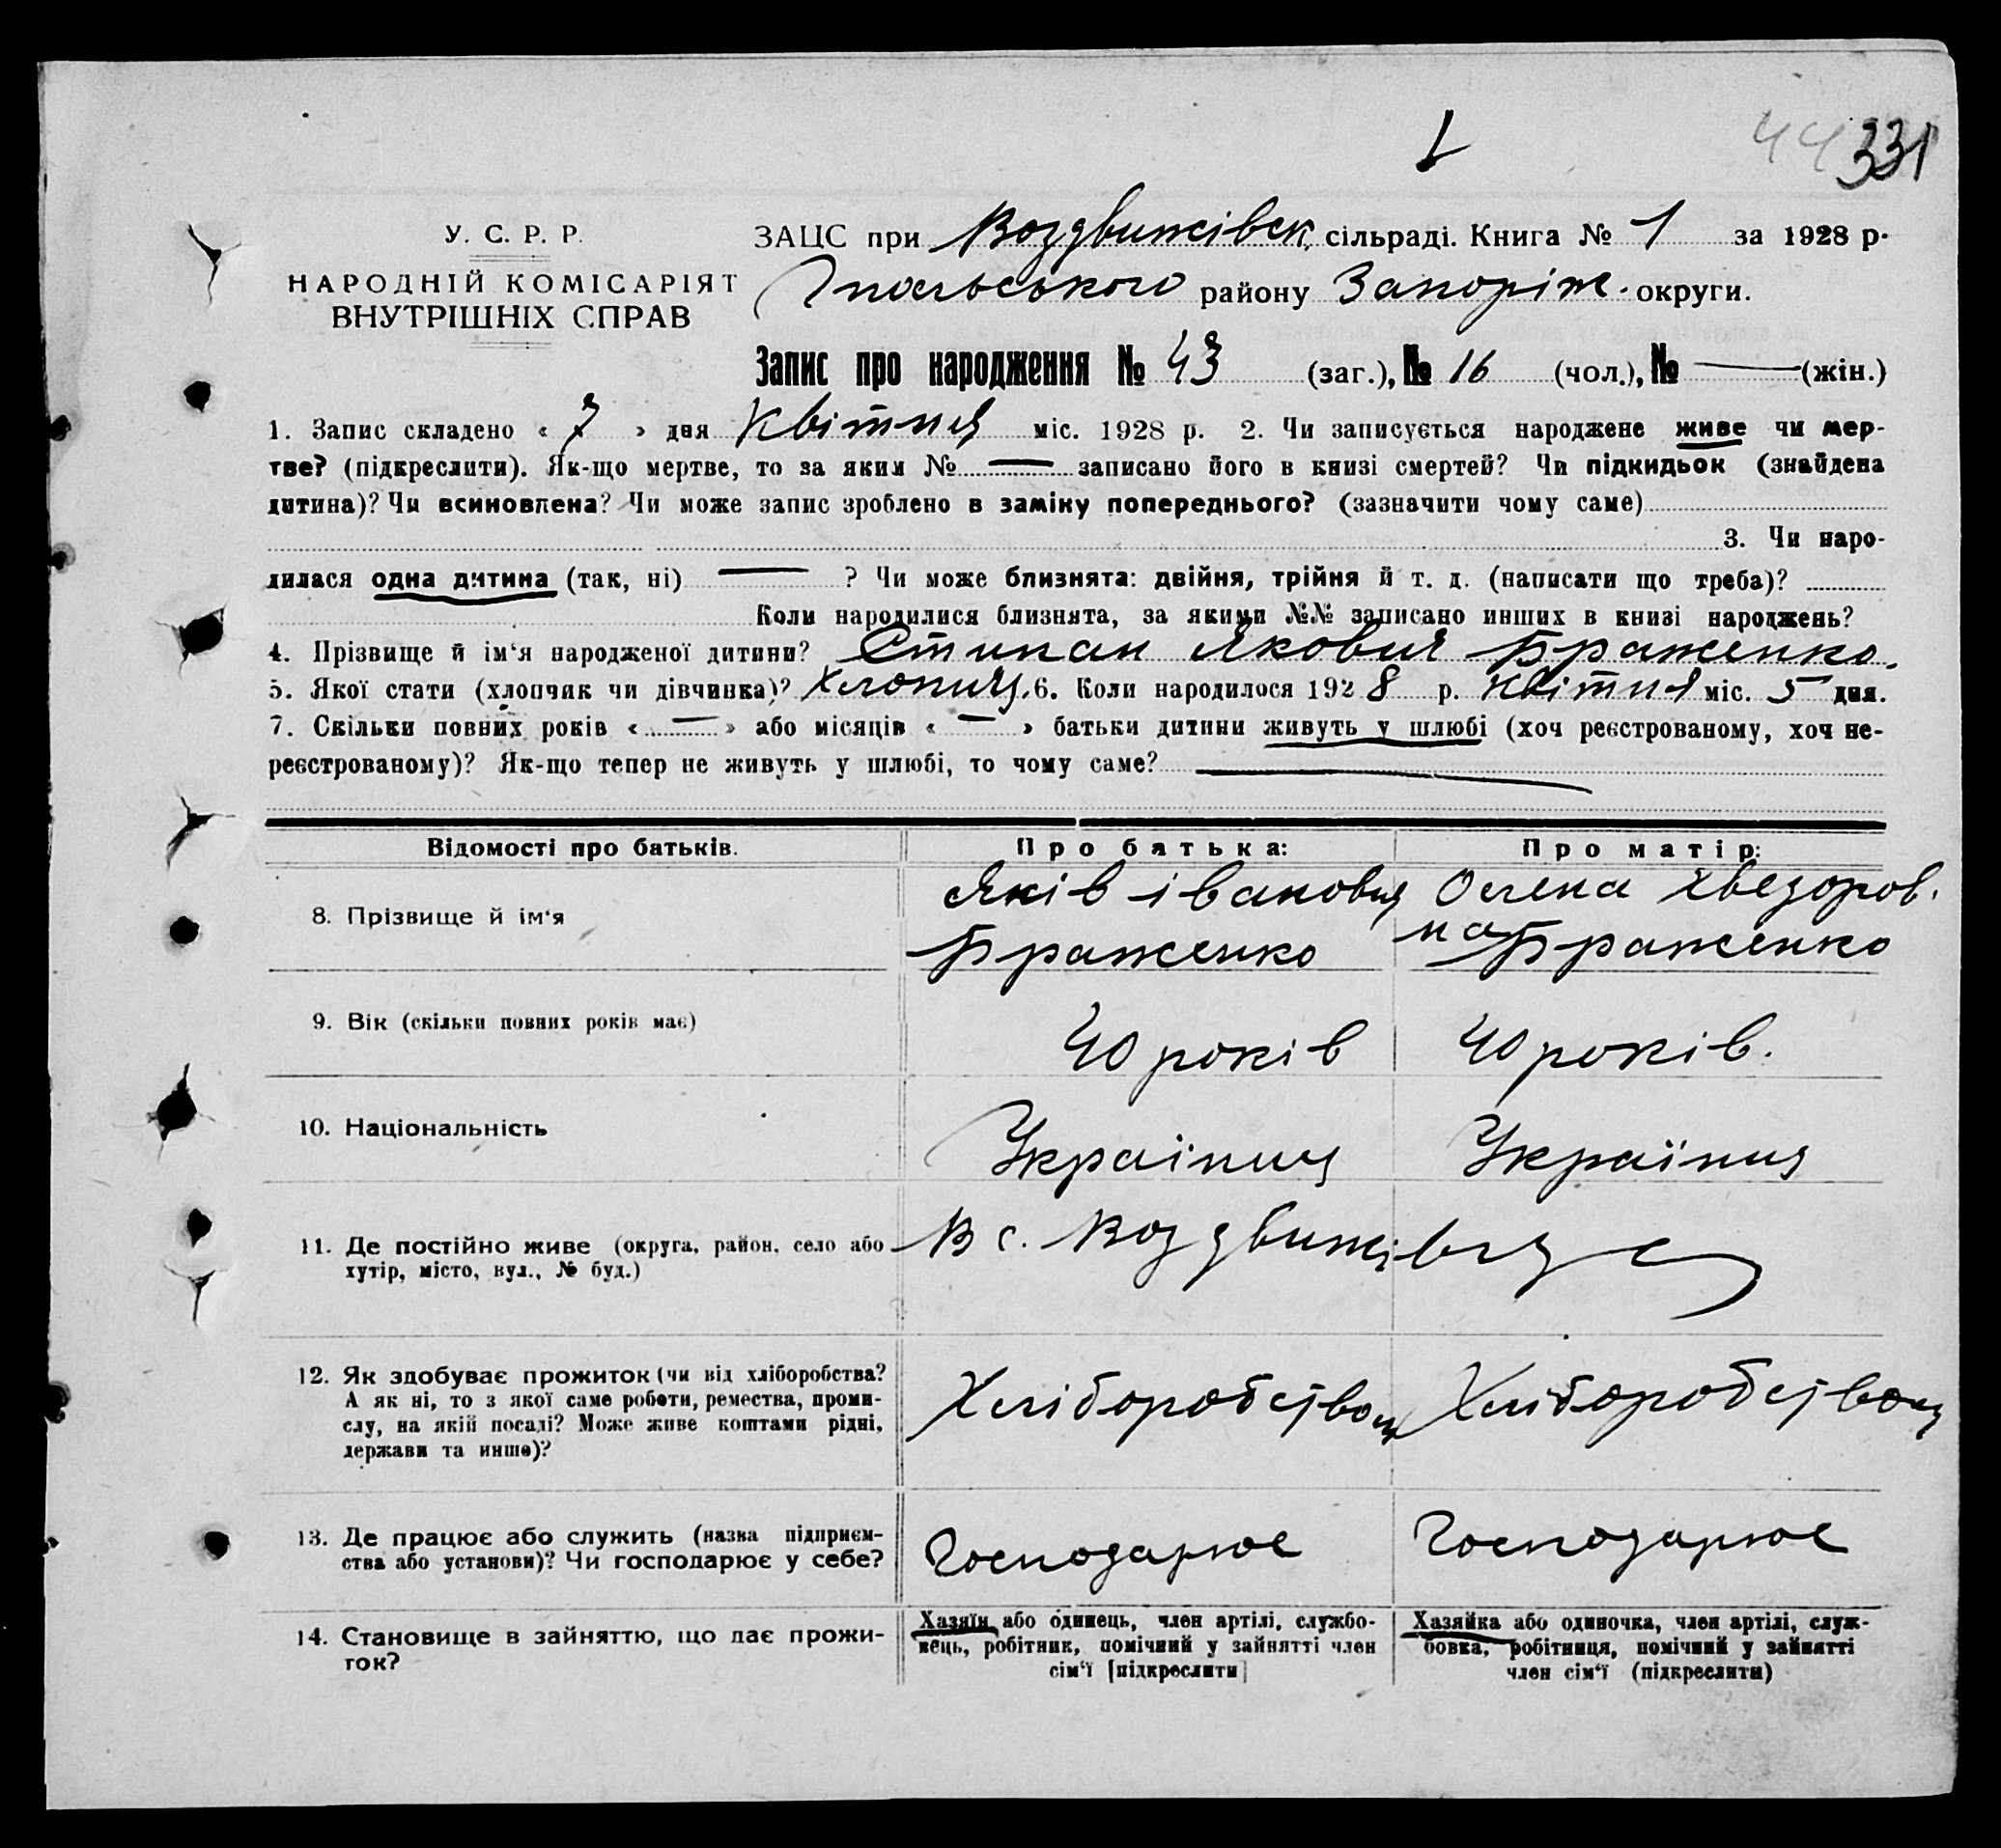 44 331
У. С. Р. Р.
НАРОДНІЙ КОМІСАРІЯТ
ВНУТРІШНІХ СПРАВ
ЗАЦС при Воздвижівск. сільраді. Книга № 1 за 1928 р.
району Запоріж. округи.
Запис про народження № 43 (заг.), № 16 (чол.), № — (жін.)
1. Запис складено « 7 » дня Квітня міс. 1928 р. 2. Чи записується народжене живе чи мер-
тве? (підкреслити). Як-що мертве, то за яким № — записано його в книзі смертей? Чи підкидьок (знайдена
дитина)? Чи всиновлена? Чи може запис зроблено в заміну попереднього? (зазначити чому саме)
3. Чи наро-
дилася одна дитина (так, ні) — ? Чи може близнята: двійня, трійня й т. д. (написати що треба)?
Коли народилися близнята, за якими №№ записано инших в книзі народжень?
4. Прізвище й ім‘я народженої дитини? Стипан Якович Браженко.
5. Якої стати (хлопчик чи дівчинка)? Хлопиць. 6. Коли народилося 1928 р. Квітня міс. 5 дня.
7. Скільки повних років « — » або місяців « — » батьки дитини живуть у шлюбі (хоч реєстрованому, хоч не-
реєстрованому)? Як-що тепер не живуть у шлюбі, то чому саме? —
Відомості про батьків. Про батька: Про матір:
8. Прізвище й ім‘я
Яків Іванович
Браженко
Олена Хведоров.
на Браженко
9. Вік (скільки повних років має) 40 років 40 років.
10. Національність Українць Україниця
11. Де постійно живе (округа, район, село або
хутір, місто, вул., № буд.)
В с. Воздвижівці
12. Як здобуває прожиток (чи від хліборобства?
А як ні, то з якої саме роботи, ремества, проми-
слу, на якій посаді? Може живе коштами рідні,
держави та инше)?
Хліборобством Хліборобством
13. Де працює або служить (назва підприєм-
ства або установи)? Чи господарює у себе?
Господарює Господарює
14. Становище в зайняттю, що дає прожи-
ток?
Хазяїн або одинець, член артілі, службо-
вець, робітник, помічний у зайнятті член
сім‘ї [підкреслити]
Хазяйка або одиночка, член артілі, служ-
бовка, робітниця, помічний у зайнятті
член сім‘ї (підкреслити)